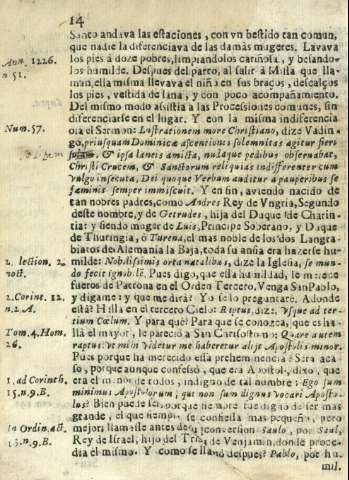 14
Santo andava las estaciones, con vn bestido tan comun,
que nadie la diferenciava de las damàs mugeres. Lavava
Ann. 1226. los pies à doze pobres, limpiandolos cariñosa, y besando-
n 51. los humilde. Despues del parto, al salir à Missa que lla-
man, ella misma llevava el niño en sus braços, descalços
los pies, vestida de lana, y con poco acompañamiento.
Del mismo modo assistia à las Processiones comunes, sin
diferenciarse en el lugar. Y con la misma indiferencia
Num. 57. oia el Sermon: Lustrationem more Christiano, dize Vadin-
go, priusquam Dominicæ ascentionis solemnitas agitur fieri
& ipsa laneis amicta, nudaque pedibus observabat,
Christi Crucem, & Sanctorum reliquias indifferenter cum
vulgo insecuta. Dei quoque Verbum auditur a pauperibus se
fæminis semper immiscuit. Y en fin, aviendo nacido de
tan nobres padres, como Andres Rey de Vngria, Segundo
deste nombre, y de Getrudes, hija del Duque de Charin-
tia: y siendo muger de Luis, Principe Soberano, y Duque
de Thuringia, ò Turena, el mas noble de los dos Langra-
biatos de Alemania la Baja, toda su ansia era hazerse hu-
2. lection. 2. milde: Nobilissimis orta natalibus, dize la Iglesia, se mun-
noct. do fecit ignobilẽ. Pues digo, que esta humildad, le merece
fueros de Patrona en el Orden Tercero. Venga San Pablo,
2. Corint. 12. y digame: y que me dirà? Yo se lo preguntarè. Adonde
n. 2. A. està? Halla en el tercero Cielo: Raptus, dize, Vsque ad ter-
tium Cœlum. Y para què? Para que se conozca, que es ha-
Tom. 4. Hom. llà el mayor, le pareciò a San Crisostomo: Quare autem
26. raptus? vt mihi videtur me haberetur alijs Apostolis minor.
Pues porque ha merecido essa prehemnencia? Serà aca-
so, porque aunque confessò, que era Apostol, dixo, que
1. ad Corinth. era el menor de todos, indigno de tal nombre: Ego sum
15. n. 9. B. minimus Apostolorum, qui non sum dignus vocari Aposto-
lus? Bien puede ser, porque siempre fue digno de ser mas
grande, el que siempre se confiessa mas pequeño, pero
In Ordin. act. mejor, llamase antes de su conversion Saulo, por Saul,
13. n. 9. B. Rey de Israel, hijo del Tribu de Venjamin, donde proce-
dia el mismo. Y como se llamò despues? Pablo, por hu-
mil.